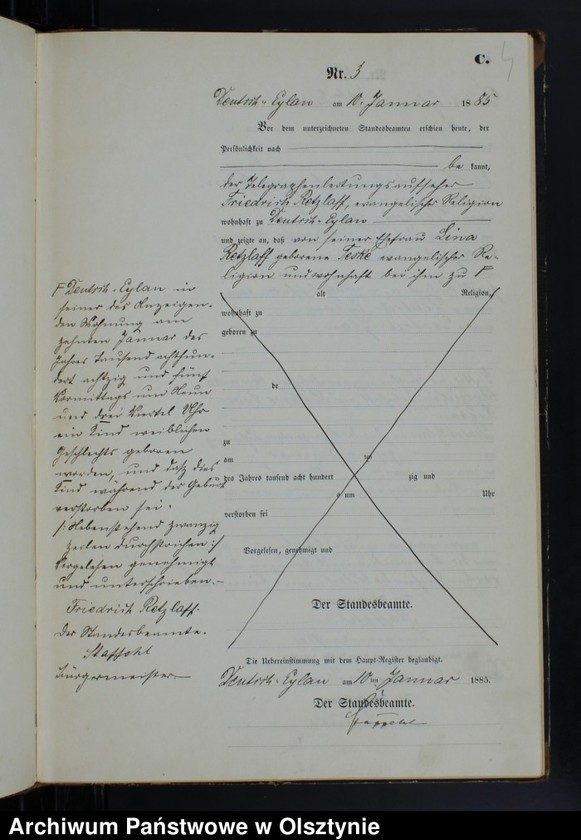 C.
Nr. 3
Deutsch-Eylau am 10. Januar 1885
Vor dem unterzeichneten Standesbeamten erschien heute, der
Persönlichkeit nach
be kannt,
der Telegraphenleitungsaufseher
Friedrich Retzlaff, evangelischer Religion
wohnhaft zu Deutsch-Eylau
und zeigte an, daß von seiner Ehefrau Lina
Retzlaff geborene Teske evangelischer Re-
ligion und wohnhaft bei ihm zu F
F Deutsch-Eylau in
seiner des Anzeigen-
den Wohnung am
zehnten Januar des
Jahres tausend achthun-
dert achtzig und fünf
Vormittags um Neun
und drei Viertel Uhr
ein Kind weiblichen
Geschlechts geboren
worden, und daß dies
Kind während der Geburt
verstorben sei.
/: Nebenstehend zwanzig
Zeilen durchstrichen :/
Vorgelesen genehmigt
und unterschrieben.
Friedrich Retzlaff.
Der Standesbeamte.
Staffehl
Bürgermeister
alt Religion,
wohnhaft zu
geboren zu
de
zu
am ten
des Jahres tausend acht hundert zig und
um Uhr
verstorben sei
Vorgelesen, genehmigt und
Der Standesbeamte.
Die Uebereinstimmung mit dem Haupt-Register beglaubigt.
Deutsch-Eylau am 10ten Januar 1885.
Der Standesbeamte.
Archiwum Państwowe w Olsztynie